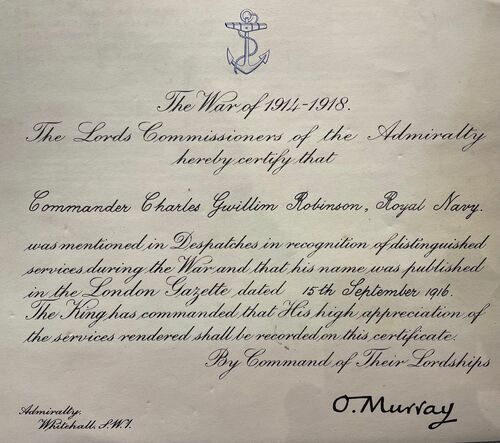 The War of 1914-1918.
The Lords Commissioners of the Admiralty
hereby certify that
Commander Charles Gwillim Robinson, Royal Navy.
was mentioned in Despatches in recognition of distinguished
services during the War and that his name was published
in the London Gazette dated 15th September 1916.
The King has commanded that His high appreciation of
the services rendered shall be recorded on this certificate.
By Command of Their Lordships
O. Murray
Admiralty,
Whitehall, S.W.1.